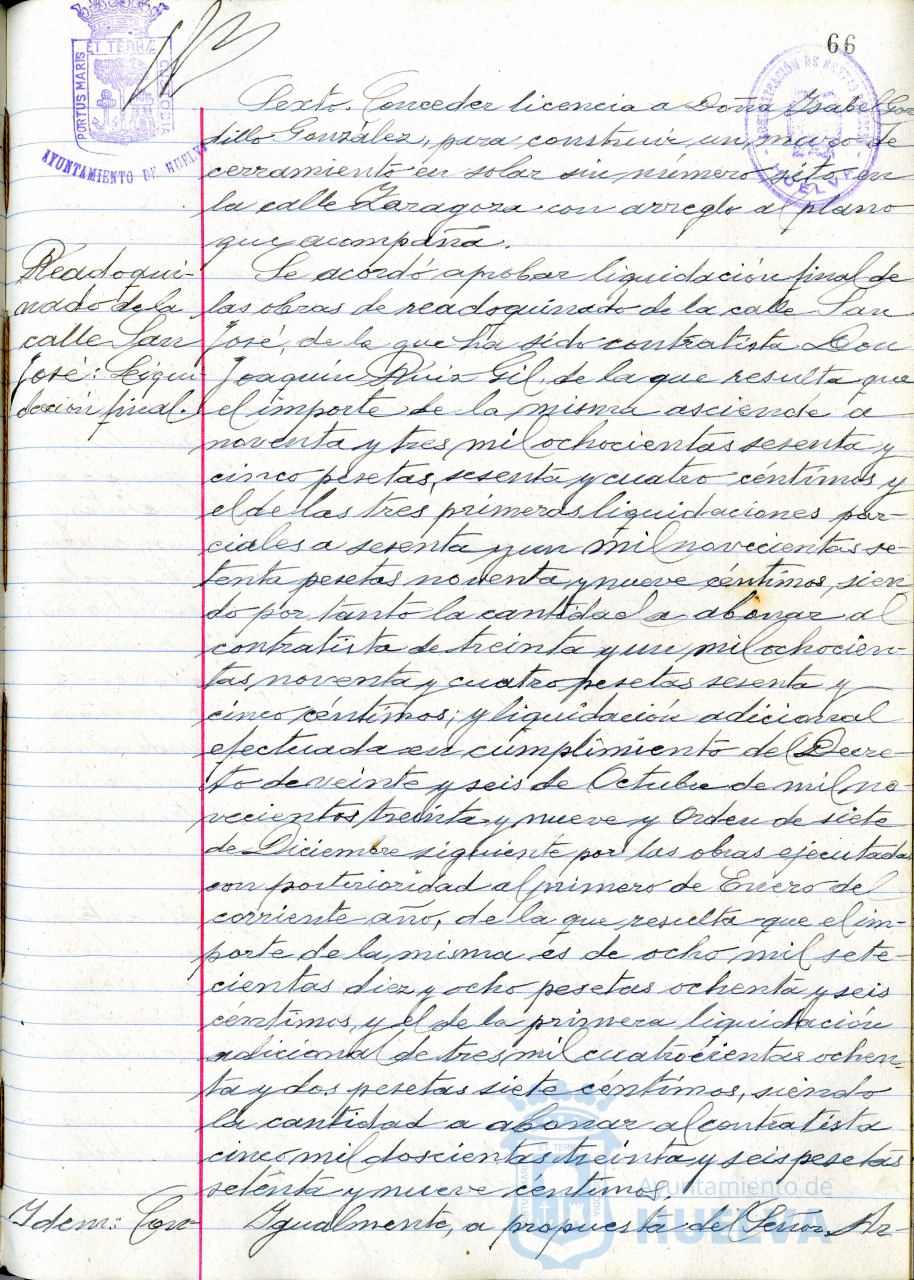 66
PORTUS MARIS ET TERRÆ CUSTODIA
AYUNTAMIENTO DE HUELVA
HUELVA
Sexto. Conceder licencia a Doña Isabel Gor-
dillo González, para construir un muro de
cerramiento en solar sin número sito en
la calle Zaragoza con arreglo al plano
que acompaña.
Readoqui-
nado de la
calle San
José: Liqui-
dación final.
Se acordó aprobar liquidación final de
las obras de readoquinado de la calle San
José, de la que ha sido contratista Don
Joaquín Ruiz Gil, de la que resulta que
el importe de la misma asciende a
noventa y tres mil ochocientas sesenta y
cinco pesetas, sesenta y cuatro céntimos y
el de las tres primeras liquidaciones par-
ciales a sesenta y un mil novecientas se-
tenta pesetas noventa y nueve céntimos, sien-
do por tanto la cantidad a abonar al
contratista de treinta y un mil ochocien-
tas noventa y cuatro pesetas sesenta y
cinco céntimos; y liquidación adicional
efectuada en cumplimiento del Decre-
to de veinte y seis de Octubre de mil no-
vecientos treinta y nueve y Orden de siete
de Diciembre siguiente por las obras ejecutadas
con posterioridad al primero de Enero del
corriente año, de la que resulta que el im-
porte de la misma es de ocho mil sete-
cientas diez y ocho pesetas ochenta y seis
céntimos y el de la primera liquidación
adicional de tres mil cuatrocientas ochen-
ta y dos pesetas siete céntimos, siendo
la cantidad a abonar al contratista
cinco mil doscientas treinta y seis pesetas
setenta y nueve centimos.
Idem: Con-
Igualmente, a propuesta de Señor Ar-
Ayuntamiento de
HUELVA